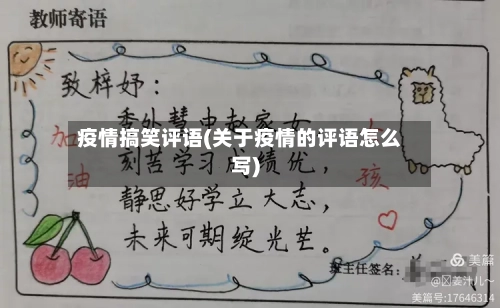 教师寄语
致梓妤：
秀外慧中赵家女
疫情搞笑评语(关于疫情的评语怎么
写)
刻苦学习成绩优，
静思好学立大志，
未来可期绽光芒。
加
油
孩
班主任签名：
美篇
姜汁儿~
美篇号:17646314